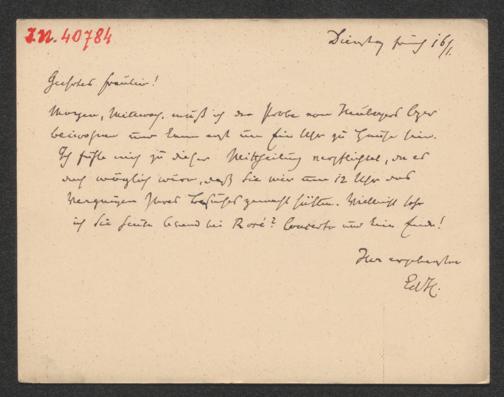 I.N. 40784
Dienstag früh 16/1.
Geehrtes Fräulein!
Morgen, Mittwoch, muß ich der Probe von Heubergers Oper
beiwohnen und kann erst um Ein Uhr zu Hause sein.
Ich fühle mich zu dieser Mittheilung verpflichtet, da es
doch möglich wäre, daß Sie mir um 12 Uhr das
Vergnügen Ihres Besuches gemacht hätten. Vielleicht sehe
ich Sie heute Abend bei Rosé? Concerte und kein Ende!
Ihr ergebenster
Ed H.